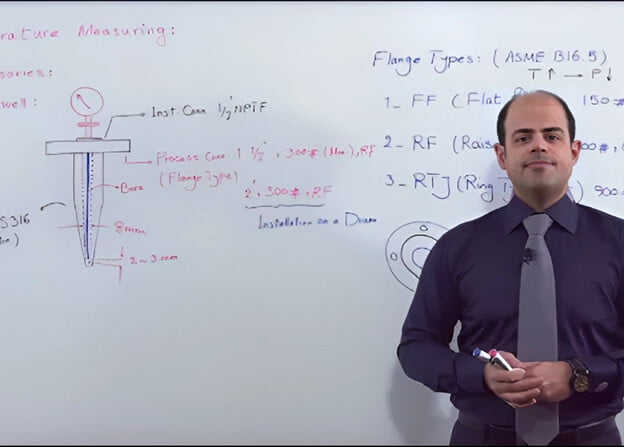 rature Measuring:
sories:
well:
Inst. Conn 1/2" NPTF
Process Conn 1 1/2", 300# (Min), RF
(Flange Type)
Bore
2", 300#, RF
Installation on a Drum
S316
8mm
2~3mm
Flange Types: (ASME B16.5)
T↑ → P↓
1_ FF (Flat 150#
2_ RF (Rais
3_ RTJ (Ring Ty 900